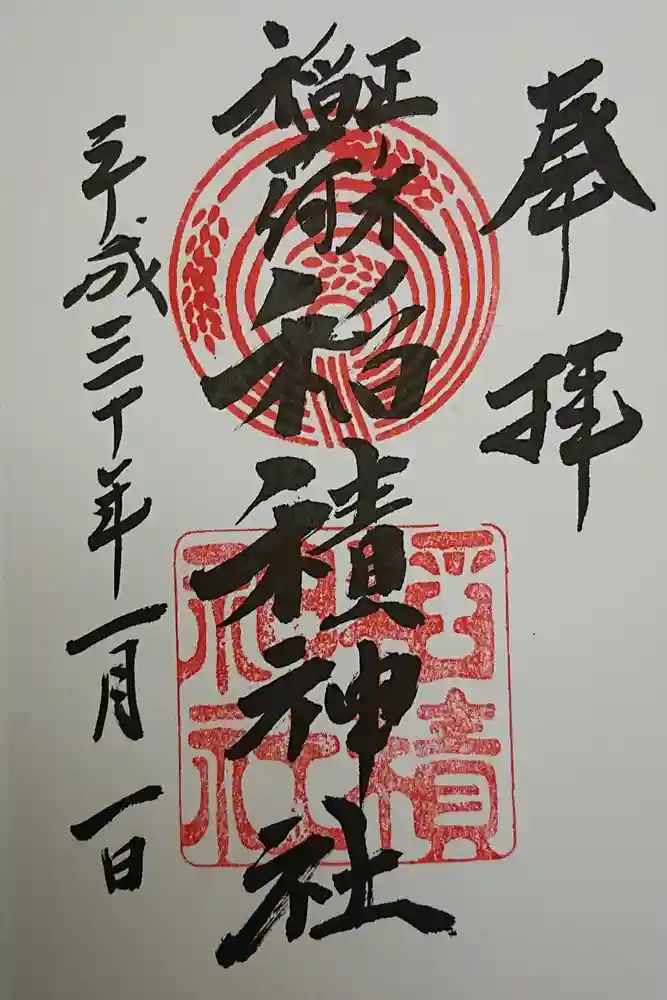 奉拝
正木
稲荷
稲積神社
平成三十年一月一日
稲積
神社